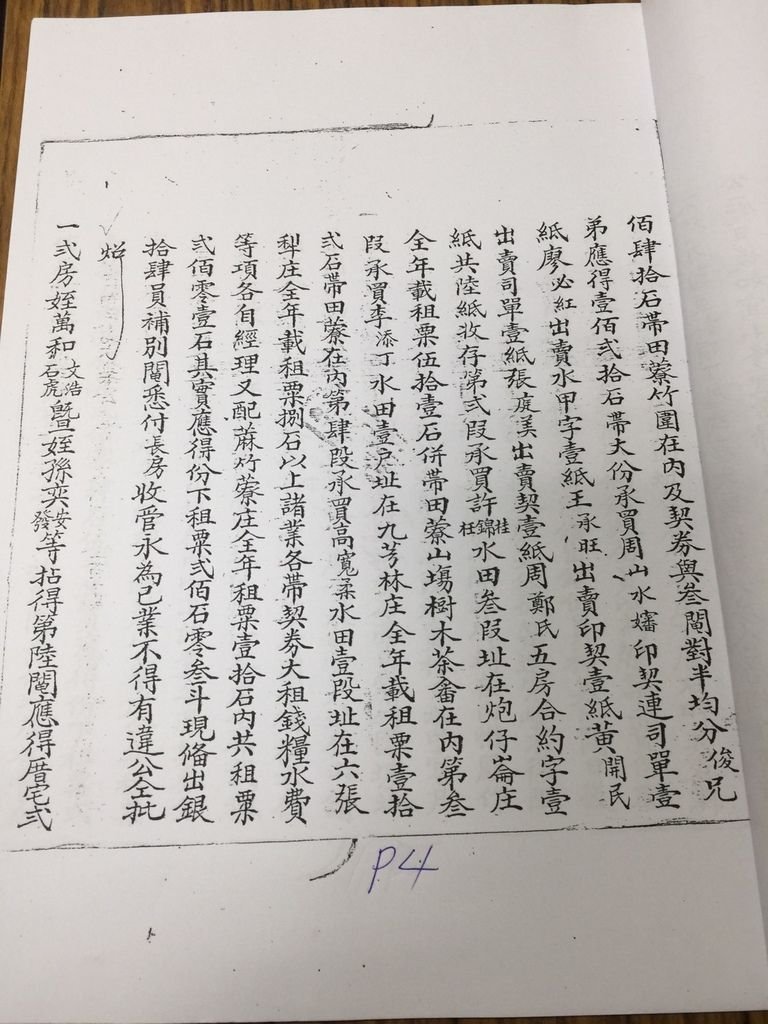 佰肆拾石帶田藔竹圍在內及契券與叁鬮對半均分俊兄
弟應得壹佰弍拾石帶大份承買周山水嬸印契連司單壹
紙廖必紅出賣水甲字壹紙王承旺出賣印契壹紙黃開民
出賣司單壹紙張庭美出賣契壹紙周鄭氏五房合約字壹
紙共陸紙收存第弍叚承買許錦桂枉水田叁叚址在炮仔崙庄
全年載租粟伍拾壹石併帶田藔山塲樹木茶畬在內第叁
叚承買李添丁水田壹戶址在九芎林庄全年載租粟壹拾
弍石帶田藔在內第肆段承買高寬柔水田壹段址在六張
犁庄全年載租粟捌石以上諸業各帶契券大租錢糧水費
等項各自經理又配蔴竹藔庄全年租粟壹拾石內共租粟
弍佰零壹石其實應得份下租粟弍佰石零叁斗現俻出銀
拾肆員補別鬮悉付長房收管永為己業不得有違公仝批
炤
一弍房姪萬和文浩石虎暨姪孫奕安發等拈得第陸鬮應得厝宅弍
P4